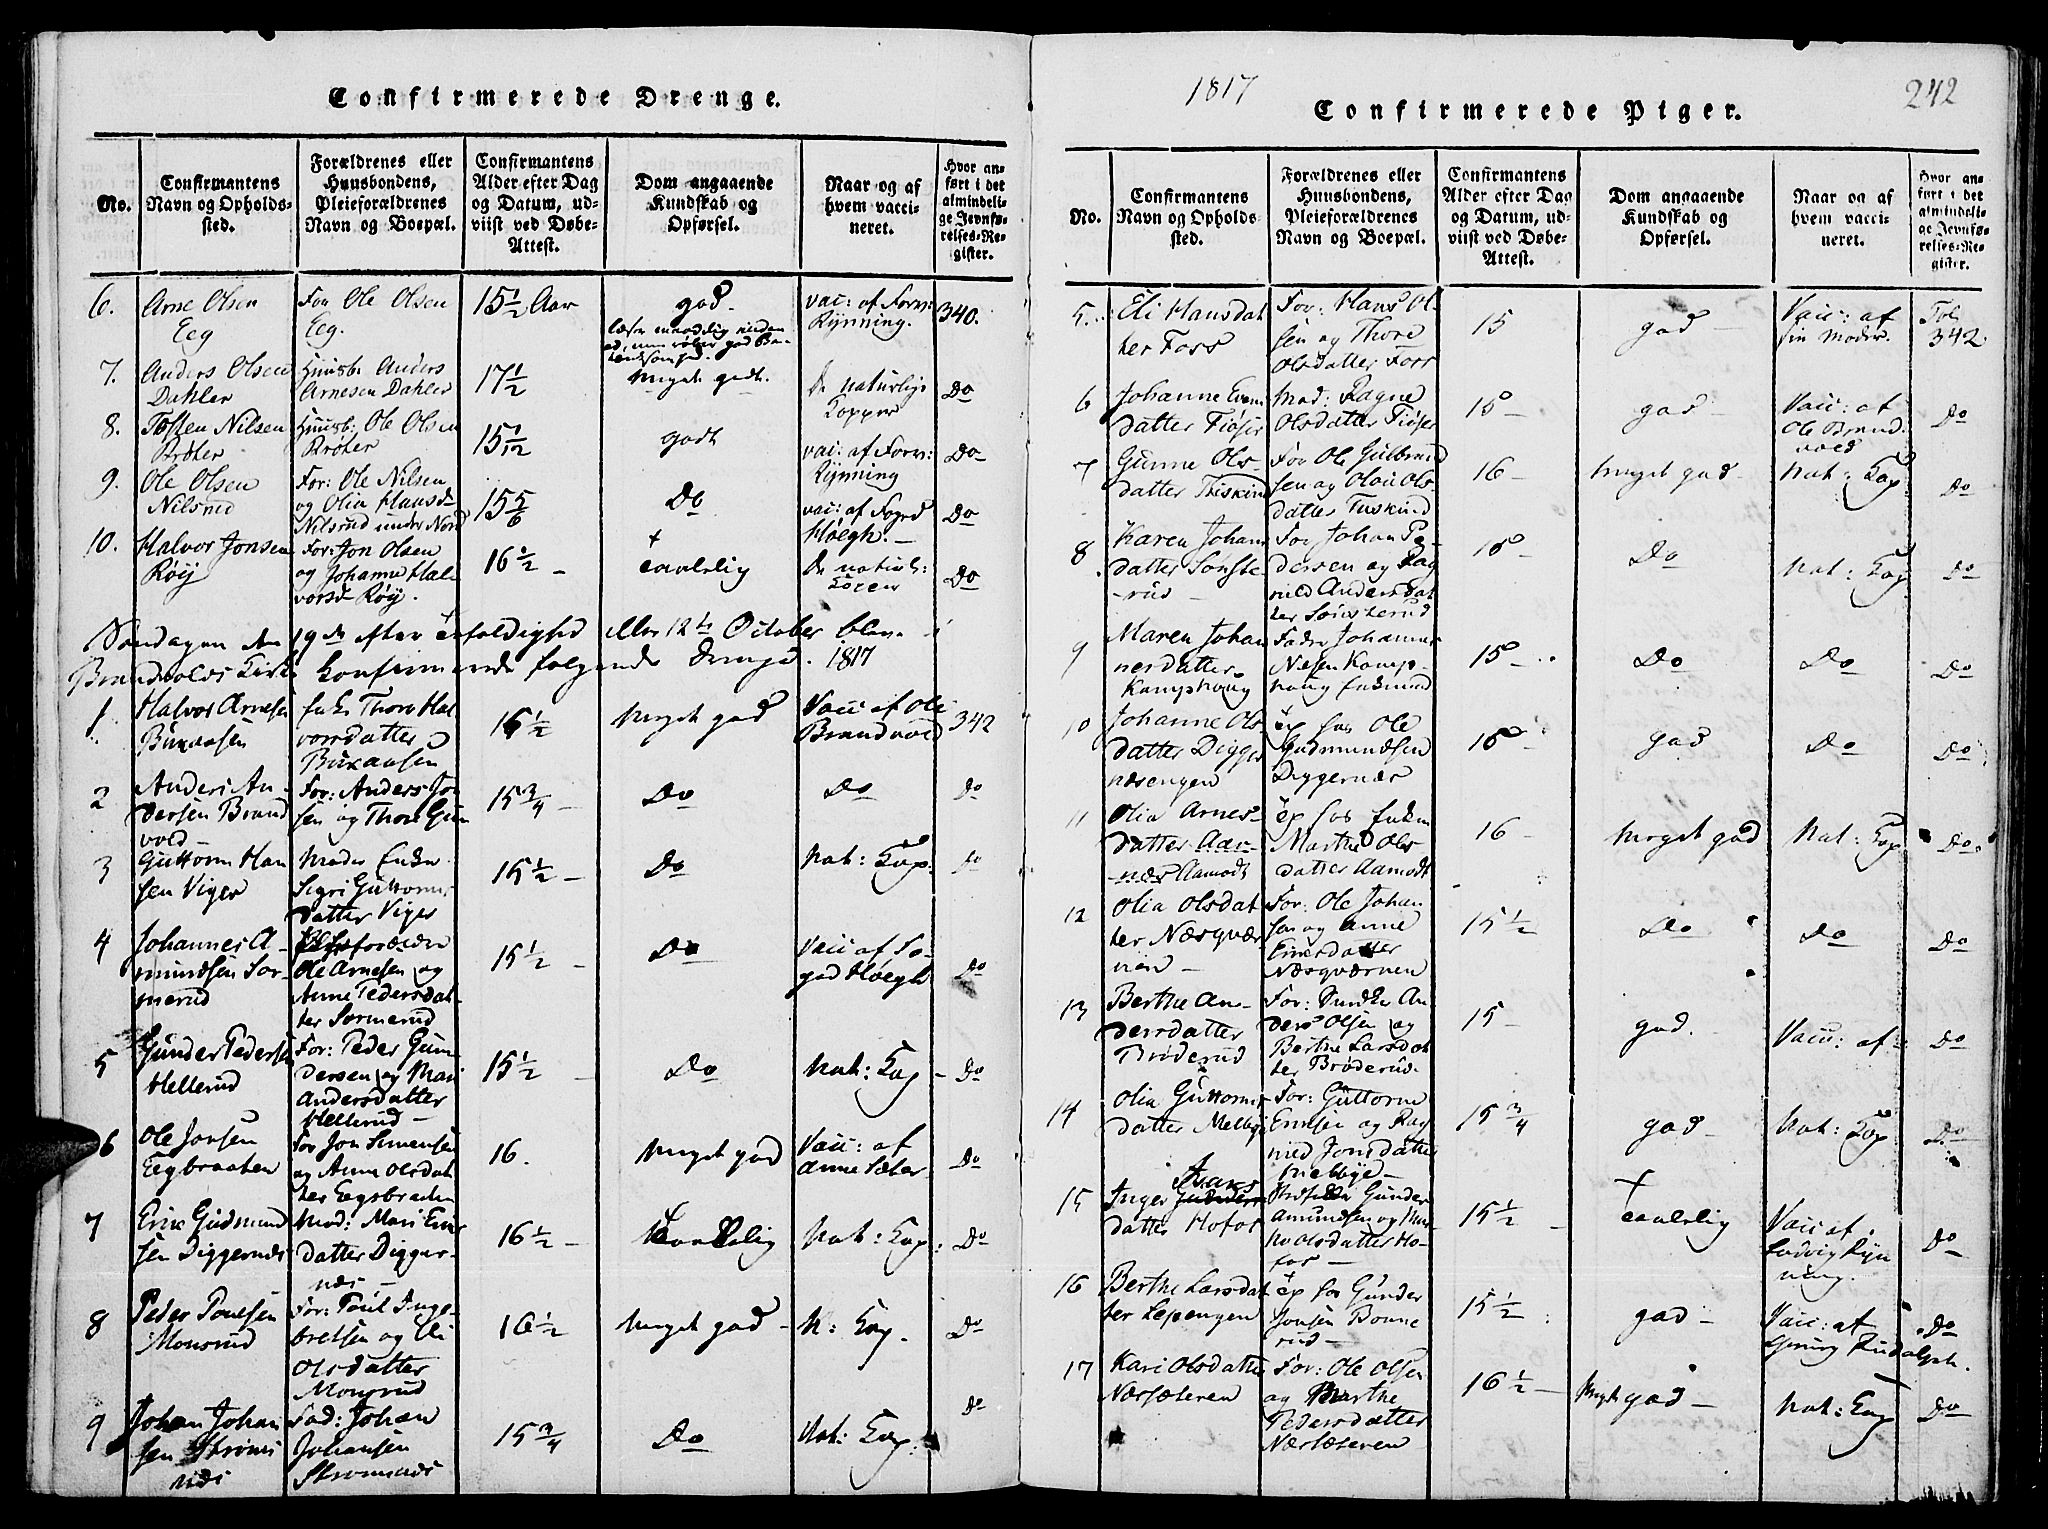 Confirmerede Drenge.
No.
Confirmantens
Navn og Opholds-
sted.
Forældrenes eller
Huusbondens,
Pleieforældrenes
Navn og Boepæl.
Confirmantens
Alder efter Dag
og Datum, ud-
viist ved Døbe-
Attest.
Dom angaaende
Kundskab og
Opførsel.
Naar og af
hvem vacci-
neret.
Hvor an-
ført i det
almindeli-
ge Jevnfø-
relses-Re-
gister.
6.
Arne Olsen
Eeg
For Ole Olsen
Eeg.
15 1/2 Aar
god.
vac: af Forv:
Rynning.
340.
7.
Anders Olsen
Dahler
Huusb: Anders
Arnesen Dahler
17 1/2
Meget godt.
De naturlige
Kopper
Do
8.
Tosten Nilsen
Brøter
Huusb: Ole Olsen
Brøter
15 1/12
godt
vac: af Forv:
Rynning
Do
9.
Ole Olsen
Nilsrud
For: Ole Nilsen
og Olia Hansd
Nilsrud under Nord
15 5/6
Do
vac: af Foged
Høegh.
Do
10.
Halvor Jonsen
Røÿ
For: Jon Olsen
og Johanne Hal
vorsd Røÿ.
16 1/2
+
taalelig
De naturl:
Do
Søndagen den 19de efter Trefoldighed eller 12te October blev i
Brandvolds Kirke Confirmerede følgende Drenge. 1817
1
Halvor Arnesen
Buraasen
Enke Thore Hal
vorsdatter
Buraasen
16 1/2
Meget god
Vacc af Ole
Brandvold
342
2
Anders An-
dersen Brand
vold
For: Anders Jo
sen og Thore Gun
15 3/4
Do
Do
Do
3
Guttorm Han
sen Viger
Moder Enke
Segri Guttorms
datter Viger
15 1/2
Do
Nat: Kop:
Do
4
Johannes A-
mundsen Sor-
merud
Pleieforældre
Ole Arnesen og
Anne Pedersdat-
ter Sormerud
15 1/2
Do
Vacc af Fo-
ged Høegh
Do
5
Gunder Pedersen
Hellerud
For: Peder Gun
dersen og Mari
Andersdatter
Hellerud
15 1/2
Do
Nat: Kop
Do
6
Ole Jonsen
Eegbraaten
For Jon Simensen
og Anne Olsdat
ter Eegsbraaten
16.
Meget god
Vacc: af
Anne Sæter
Do
7
Eric Gudmund
sen Diggernæs
Mod: Mari Eric
datter Digger-
næs
16 1/2
Taalelig
Nat: Kop:
Do
8
Peder Poulsen
Monsrud
For: Poul Inge-
bretsen og Eli
Olsdatter
Monsrud
16 1/2
Meget god
N: Kop.
Do
9
Johan Johan
sen Strøms
næs
Fad: Johan
Johansen
Strømsnæs
15 3/4
Do
Nat: Kop:
Do
1817
242
Confirmerede Piger.
No.
Confirmantens
Navn og Opholds-
sted.
Forældrenes eller
Huusbondens,
Pleieforældrenes
Navn og Boepæl.
Confirmantens
Alder efter Dag
og Datum, ud-
viist ved Døbe-
Attest.
Dom angaaende
Kundskab og
Opførsel.
Naar og af
hvem vacci-
neret.
Hvor an-
ført i det
almindeli-
ge Jevnfø-
relses-Re-
gister.
5.
Eli Hansdat
ter Foss
For: Hans Ol-
sen og Thore
Olsdatter Foss
15
god
Vacc: af
sin Moder.
Fol
342.
6
Johanne Evens
datter Fiøser
Mod: Ragne
Olsdatter Fiøser
15
god
Vacc: af
Ole Brand
vold
Do
7
Gunne Ols-
datter Tuskind
For Ole Gulbrand
sen og Oloug Ols-
datter Tuskind
16
Meget god
Nat: Kop:
Do
8
Karen Johans
datter Sønste-
rud
For Johan Pe-
dersen og Rag
nild Andersdat
ter Sønsterud
Do
Nat: Kop
Do
9
Maren Johan
nesdatter
Kamphoug
Fader Johannes
Nilsen Kamp-
houg Enkmand
15
Do
Do
Do
10
Johanne Ols
datter Digger
næsengen
Gudmundsen
Diggernæs
god
Do
Do
11
Olia Arnes-
datter
Aamodt
Marthe Ols
datter Aamodt
16
Meget god
Nat: Kop
Do
12
Olia Olsdat
ter Næsqvær
nen
For: Ole Johan
sen og Anne
Ericsdatter
Næsqværnen
15 1/2
Do
Do
Do
13
Berthe An-
dersdatter
Brøderud
For: Snedker An
ders Olsen og
Berthe Larsdat
ter Brøderud
15
god.
Vacc: af
Do
14
Olia Guttorms-
datter Melbye
For: Guttorm
Ericsen og Rag
nild Jonsdatter
Melbye
15 3/4
god
Nat: Kop
Do
15
Inger
datter Hofos
Gunder
Amundsen og Mar
the Olsdatter Ho-
fos
15 1/2
+
taalelig
Vacc af
Ludvig Ryn
ning.
Do
16
Berthe Larsdat
ter Lepengen
Gunder
Jonsen Bonne
rud
15 1/2
god
Vacc: af
Rudolph.
Do
17
Kari Olsdatter
Næssæteren
For: Ole Olsen
og Marthe
Pedersdatter
Næssæteren
16 1/2
Meget god
Nat: Kop
Do